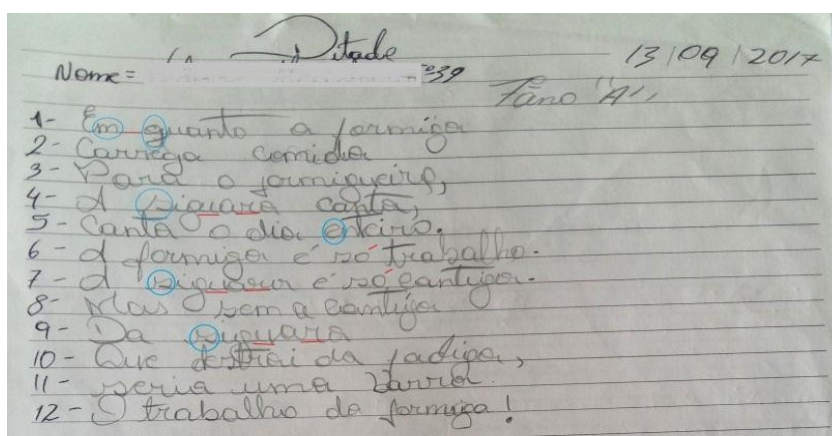 Ditade
13/09/2017
Nome= nº39
7ºano "A"
1- Em guanto a formiga
2- Carrega comida
3- Para o formigueiro,
4- A siguara canta,
5- Canta o dia enteiro.
6- A formiga é só trabalho.
7- A é só cantiga.
8- Mas sem a cantiga
9- Da siguara
10- Que destrai da fadiga,
11- seria uma barra
12- O trabalho da formiga!